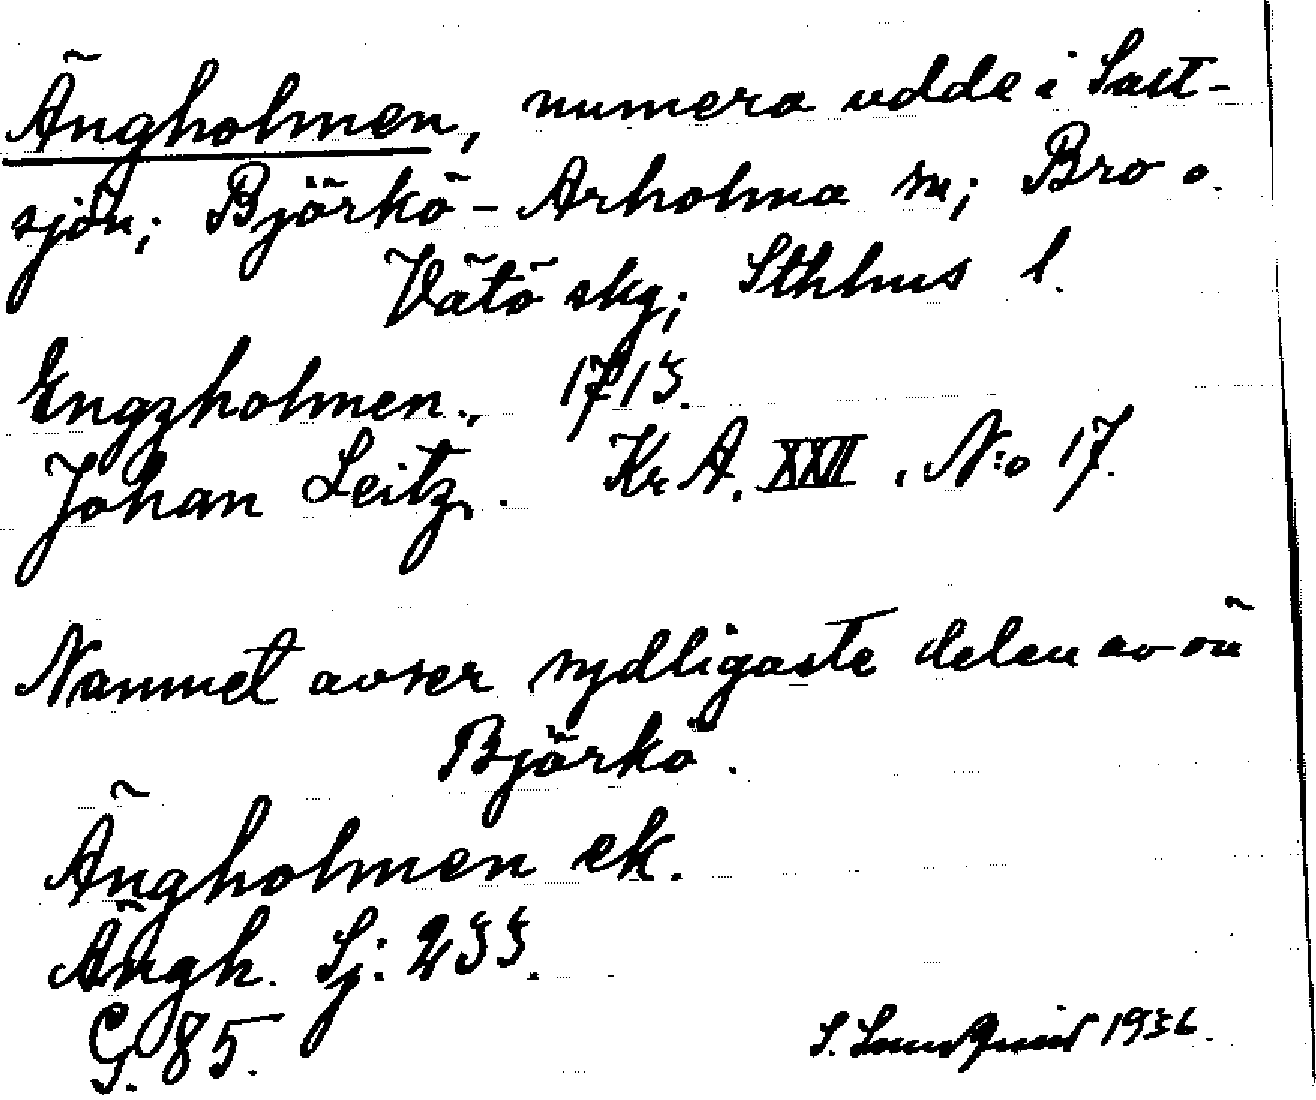 Ängholmen, numera udde i Salt-
sjön; Björkö-Arholma sn; Bro o.
Vätö skg; Sthlms l.
Engzholmen., 1713.
Johan Leitz,. Kr. A. XXII. N:o 17.
Namnet avser sydligaste delen av ön
Björkö.
Ängholmen ek.
Ängh. Sj: 233.
G. 85.
S. 1936.